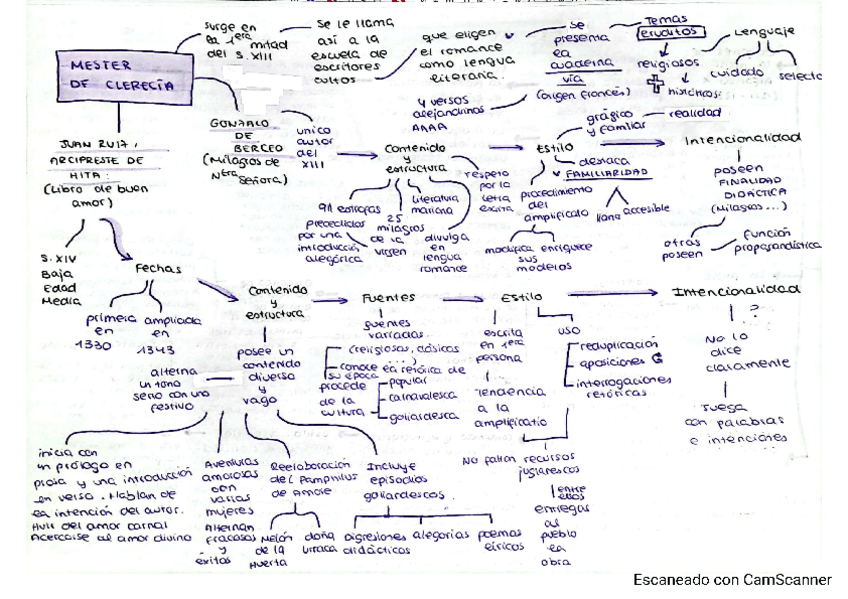 MESTER
DE CLERECÍA
surge en
la 1era mitad
del S. XIII
se le llama
así a la
escuela de
escritores
cultos
que eligen
el romance
como lengua
literaria.
se
presenta
la
cuaderna
vía
(origen francés)
4 versos
alejandrinos
AAAA
Temas
eruditos
religiosos
históricos
Lenguaje
cuidado
selecto
GONZALO
DE
BERCEO
(Milagros de
Ntra Señora)
único
autor
del
XIII
Contenido
y
estructura
911 estrofas
precedidas
por una
introducción
alegórica
25
milagros
de la
virgen
literatura
mariana
divulga
en
lengua
romance
respeto
por la
letra
escrita
Estilo
gráfico
y familiar
realidad
destaca
FAMILIARIDAD
llana
accesible
procedimiento
del
amplificatio
modifica enriquece
sus
modelos
Intencionalidad
poseen
FINALIDAD
DIDÁCTICA
(Milagros...)
otras
poseen
función
propagandística
JUAN RUIZ,
ARCIPRESTE DE
HITA:
(Libro de buen
amor)
S. XIV
Baja
Edad
Media
Fechas
primera
en
1330
ampliada
en
1343
Contenido
y
estructura
posee un
contenido
diverso
y
vago
alterna
un tono
serio con uno
festivo
inicia con
un prólogo en
prosa y una introducción
en verso. Hablan de
la intención del autor.
Huir del amor carnal
Acercarse al amor divino
Aventuras
amorosas
con
varias
mujeres
Alternan
fracasos
y
éxitos
Reelaboración
del Pamphilus
de Amore
Melón
de la
Huerta
doña
Urraca
Incluye
episodios
goliardescos
digresiones
didácticos
alegorías
poemas
líricos
Fuentes
fuentes
variadas
(religiosas, clásicas
...)
conoce la retórica de
su época
procede
de la
cultura
popular
carnavalesca
goliardesca
Estilo
escrita
en 1era
persona
Tendencia
a la
amplificatio
uso
reduplicación
aposiciones
interrogaciones
retóricas
No faltan recursos
juglarescos
entre
ellos
entregas
al
pueblo
la
obra
Intencionalidad
?
No lo
dice
claramente
Juega
con palabras
e intenciones
Escaneado con CamScanner